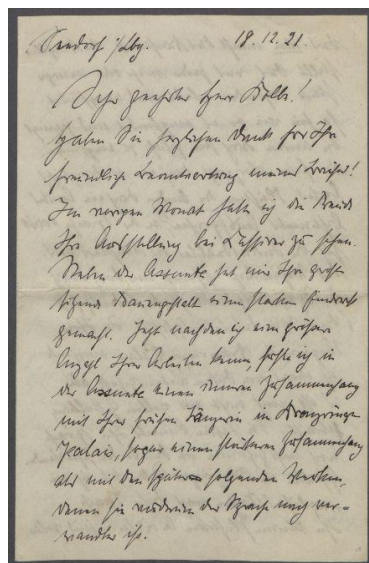 Seedorf i/Lbg. 18.12.21.
Sehr geehrter Herr Kolbe!
Haben Sie herzlichen Dank für Ihre
freundliche Beantwortung meines Briefes!
Im vorigen Monat hatte ich die Freude
Ihre Ausstellung bei Cassirer zu sehen.
Neben der Assunta hat mir Ihre große
sitzende Frauengestalt einen starken Eindruck
gemacht. Jetzt nachdem ich eine größere
Anzahl Ihrer Arbeiten kenne, fühle ich in
der Assunta einen inneren Zusammenhang
mit Ihrer frühen Tänzerin im Kronprinzen
Palais, sogar einen stärkeren Zusammenhang
als mit den später folgenden Werken,
denen sie wiederum der Sprache nach ver-
wandter ist.